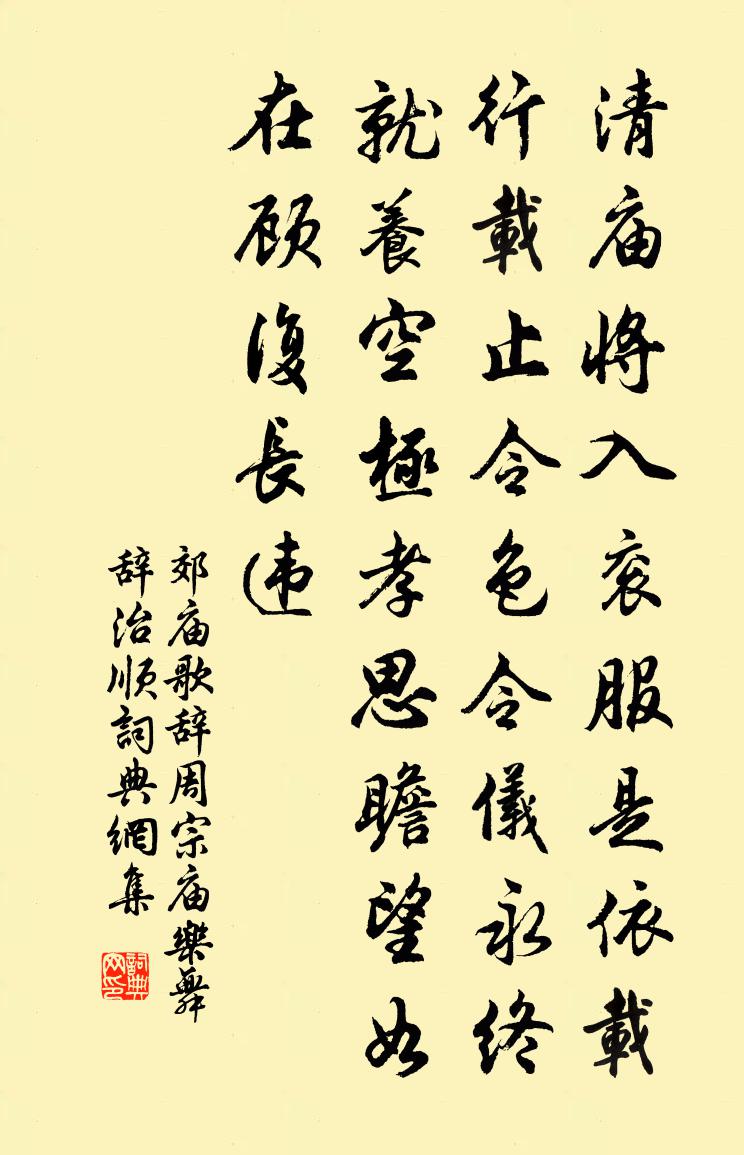 清庙将入衮服是依載
行載止令色令儀永终
就養空極孝思瞻望如
在顾復長违
郊庙歌辞周宗庙樂舞
辞治順詞典網集
詞典网印